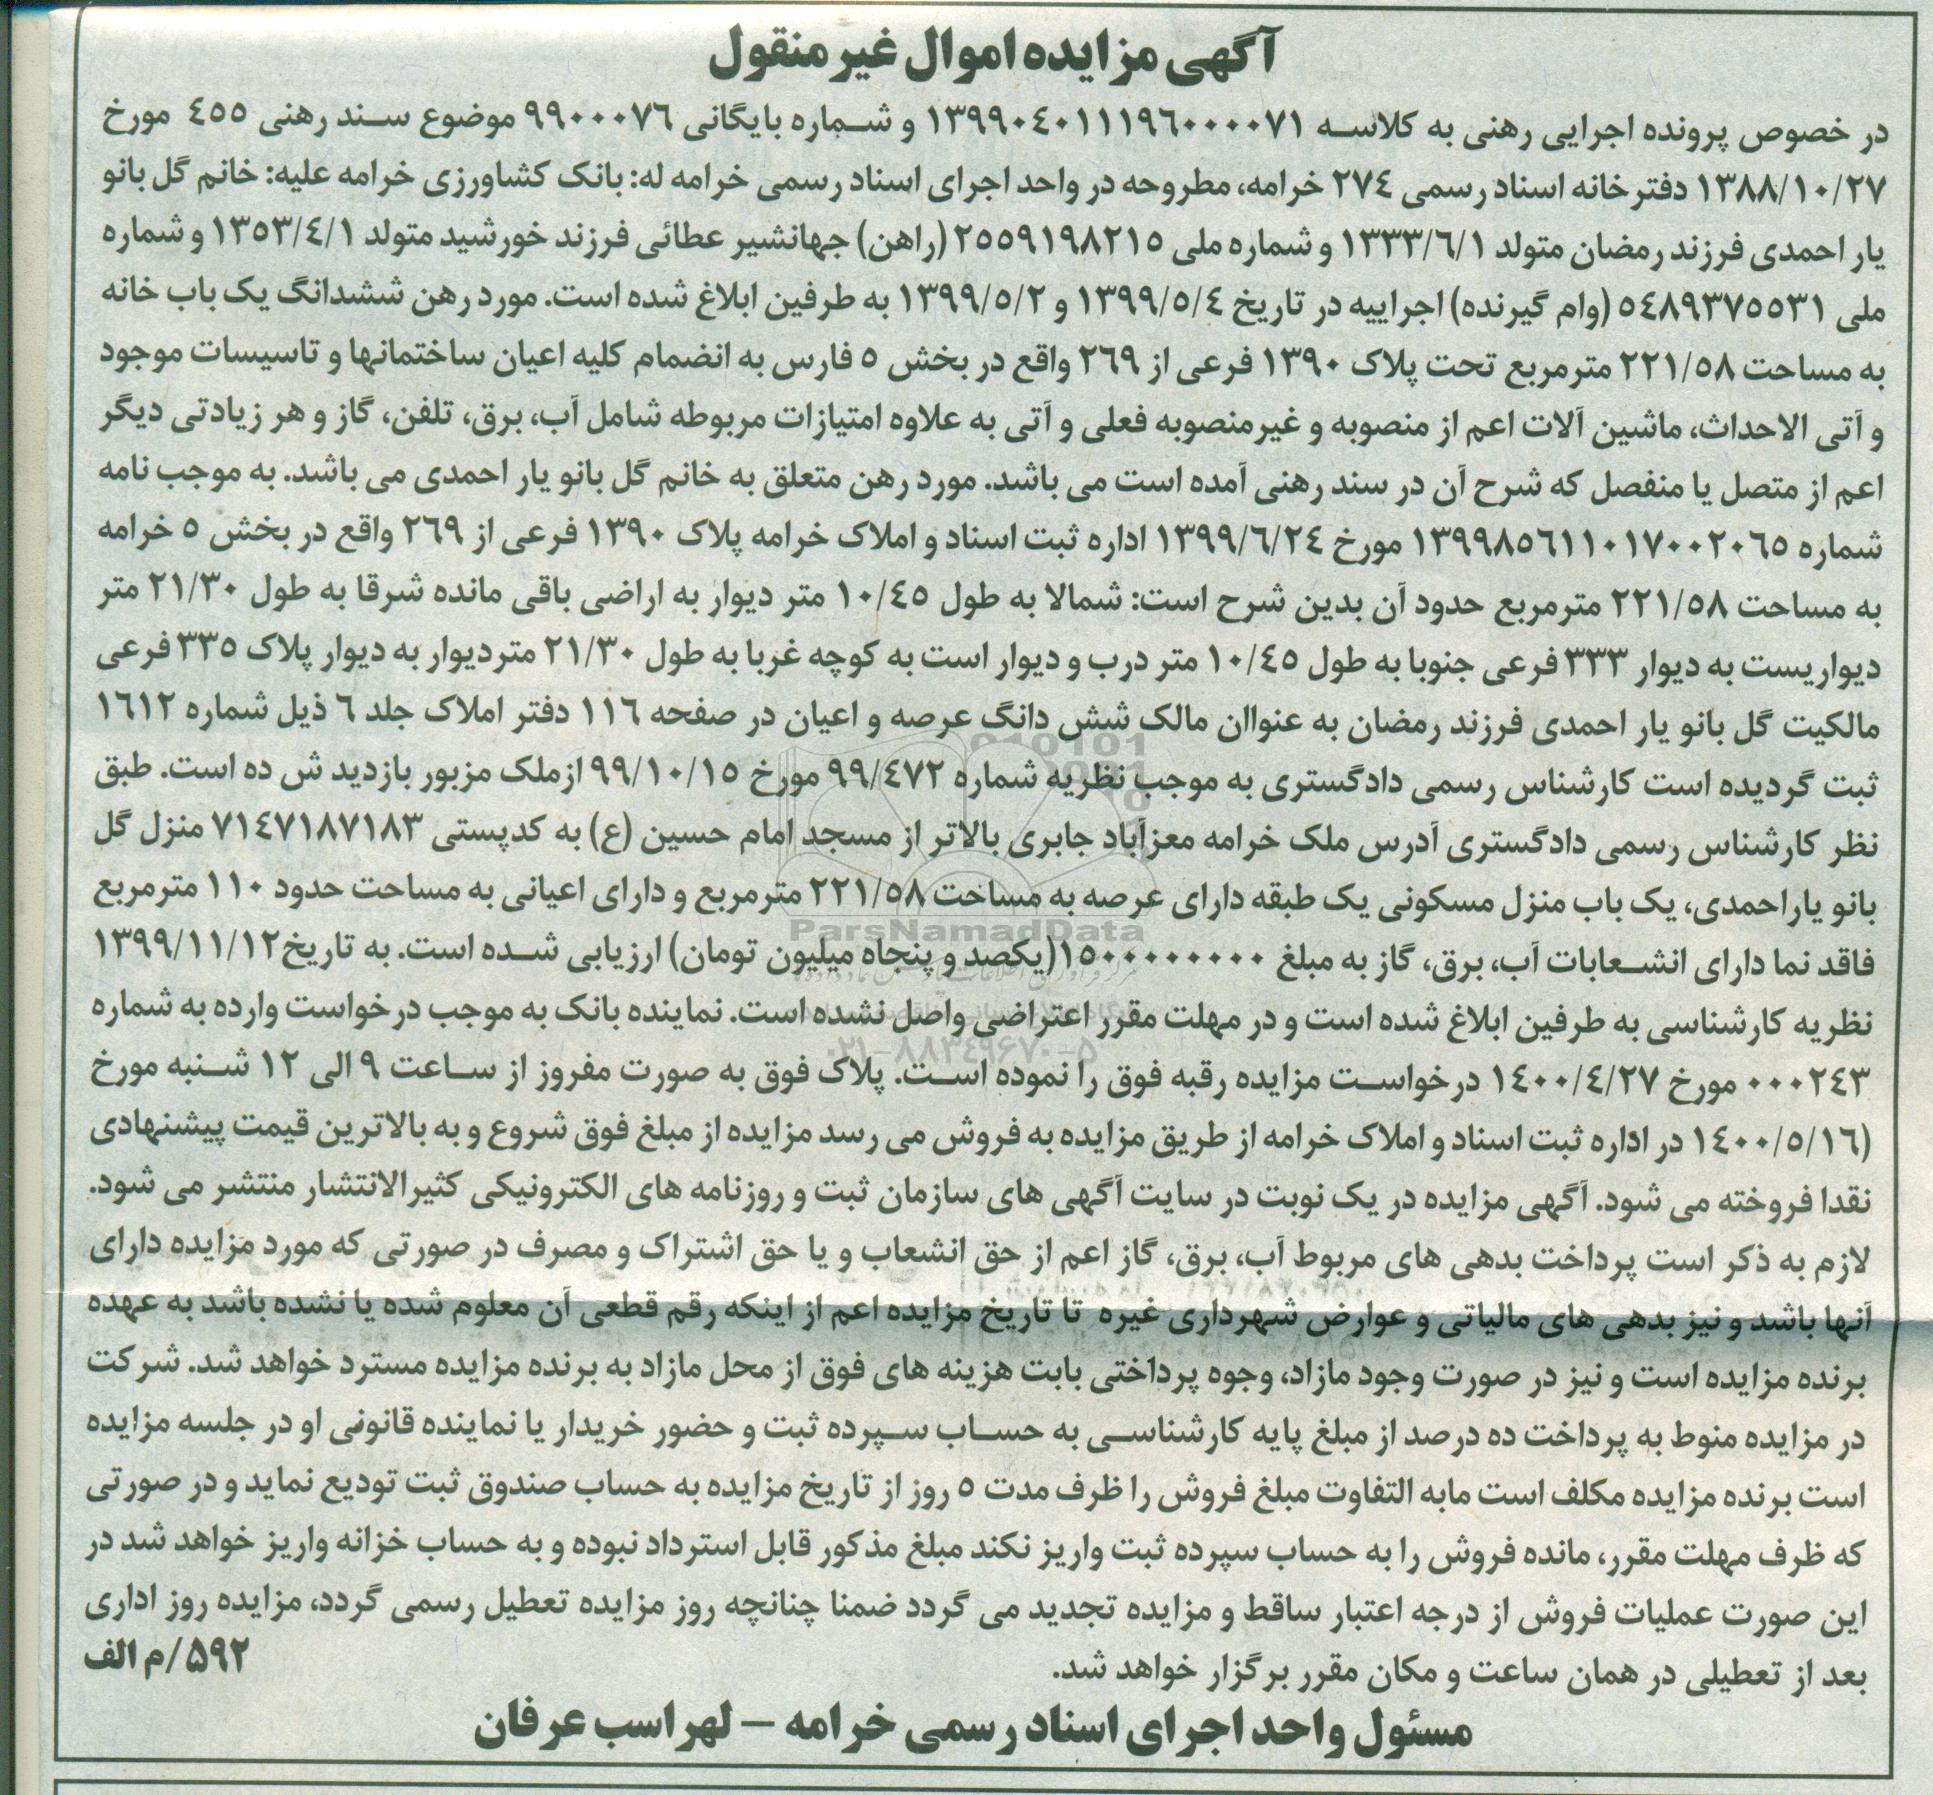 آگهی مزایده اموال غیر منقول
در خصوص پرونده اجرایی رهنی به کلاسه ۱۳۹۹۰٤۰۱۱۱۹٦۰۰۰۰۷۱ و شماره بایگانی ۹۹۰۰۰۷٦ موضوع سند رهنی ٤٥٥ مورخ
۱۳۸۸/۱۰/۲۷ دفترخانه اسناد رسمی ۲۷٤ خرامه، مطروحه در واحد اجرای اسناد رسمی خرامه له: بانک کشاورزی خرامه علیه: خانم گل بانو
یار احمدی فرزند رمضان متولد ۱۳۳۳/٦/۱ و شماره ملی ۲٥٥۹۱۹۸۲۱٥ (راهن) جهانشیر عطائی فرزند خورشید متولد ۱۳٥۳/٤/۱ و شماره
ملی ٥٤۸۹۳۷٥٥۳۱ (وام گیرنده) اجراییه در تاریخ ۱۳۹۹/٥/٤ و ۱۳۹۹/٥/۲ به طرفین ابلاغ شده است. مورد رهن ششدانگ یک باب خانه
به مساحت ۲۲۱/٥۸ مترمربع تحت پلاک ۱۳۹۰ فرعی از ۲٦۹ واقع در بخش ٥ فارس به انضمام کلیه اعیان ساختمانها و تاسیسات موجود
و آتی الاحداث، ماشین آلات اعم از منصوبه و غیرمنصوبه فعلی و آتی به علاوه امتیازات مربوطه شامل آب، برق، تلفن، گاز و هر زیادتی دیگر
اعم از متصل یا منفصل که شرح آن در سند رهنی آمده است می باشد. مورد رهن متعلق به خانم گل بانو یار احمدی می باشد. به موجب نامه
شماره ۱۳۹۹۸٥٦۱۱۰۱۷۰۰۲۰٦٥ مورخ ۱۳۹۹/٦/۲٤ اداره ثبت اسناد و املاک خرامه پلاک ۱۳۹۰ فرعی از ۲٦۹ واقع در بخش ٥ خرامه
به مساحت ۲۲۱/٥۸ مترمربع حدود آن بدین شرح است: شمالا به طول ۱۰/٤٥ متر دیوار به اراضی باقی مانده شرقا به طول ۲۱/۳۰ متر
دیواریست به دیوار ۳۳۳ فرعی جنوبا به طول ۱۰/٤٥ متر درب و دیوار است به کوچه غربا به طول ۲۱/۳۰ متردیوار به دیوار پلاک ۳۳٥ فرعی
مالکیت گل بانو یار احمدی فرزند رمضان به عنواان مالک شش دانگ عرصه و اعیان در صفحه ۱۱٦ دفتر املاک جلد ٦ ذیل شماره ۱٦۱۲
ثبت گردیده است کارشناس رسمی دادگستری به موجب نظریه شماره ۹۹/٤۷۲ مورخ ۹۹/۱۰/۱٥ ازملک مزبور بازدید ش ده است. طبق
نظر کارشناس رسمی دادگستری آدرس ملک خرامه معزآباد جابری بالاتر از مسجد امام حسین (ع) به کدپستی ۷۱٤۷۱۸۷۱۸۳ منزل گل
بانو یاراحمدی، یک باب منزل مسکونی یک طبقه دارای عرصه به مساحت ۲۲۱/٥۸ مترمربع و دارای اعیانی به مساحت حدود ۱۱۰ مترمربع
ParsNamadData
فاقد نما دارای انشعابات آب، برق، گاز به مبلغ ۱٥۰۰۰۰۰۰۰۰۰(یکصد و پنجاه میلیون تومان) ارزیابی شده است. به تاریخ۱۳۹۹/۱۱/۱۲
نظریه کارشناسی به طرفین ابلاغ شده است و در مهلت مقرر اعتراضی واصل نشده است. نماینده بانک به موجب درخواست وارده به شماره
۰۲۱-۸۸۳۴۹۶۷۰-۵
۰۰۰۲٤۳ مورخ ۱٤۰۰/٤/۲۷ درخواست مزایده رقبه فوق را نموده است. پلاک فوق به صورت مفروز از ساعت ۹ الی ۱۲ شنبه مورخ
(۱٤۰۰/٥/۱٦ در اداره ثبت اسناد و املاک خرامه از طریق مزایده به فروش می رسد مزایده از مبلغ فوق شروع و به بالاترین قیمت پیشنهادی
نقدا فروخته می شود. آگهی مزایده در یک نوبت در سایت آگهی های سازمان ثبت و روزنامه های الکترونیکی کثیرالانتشار منتشر می شود.
لازم به ذکر است پرداخت بدهی های مربوط آب، برق، گاز اعم از حق انشعاب و یا حق اشتراک و مصرف در صورتی که مورد مزایده دارای
آنها باشد و نیز بدهی های مالیاتی و عوارض شهرداری غیره تا تاریخ مزایده اعم از اینکه رقم قطعی آن معلوم شده یا نشده باشد به عهده
برنده مزایده است و نیز در صورت وجود مازاد، وجوه پرداختی بابت هزینه های فوق از محل مازاد به برنده مزایده مسترد خواهد شد. شرکت
در مزایده منوط به پرداخت ده درصد از مبلغ پایه کارشناسی به حساب سپرده ثبت و حضور خریدار یا نماینده قانونی او در جلسه مزایده
است برنده مزایده مکلف است مابه التفاوت مبلغ فروش را ظرف مدت ٥ روز از تاریخ مزایده به حساب صندوق ثبت تودیع نماید و در صورتی
که ظرف مهلت مقرر، مانده فروش را به حساب سپرده ثبت واریز نکند مبلغ مذکور قابل استرداد نبوده و به حساب خزانه واریز خواهد شد در
این صورت عملیات فروش از درجه اعتبار ساقط و مزایده تجدید می گردد ضمنا چنانچه روز مزایده تعطیل رسمی گردد، مزایده روز اداری
بعد از تعطیلی در همان ساعت و مکان مقرر برگزار خواهد شد.
۵۹۲/م الف
مسئول واحد اجرای اسناد رسمی خرامه – لهراسب عرفان